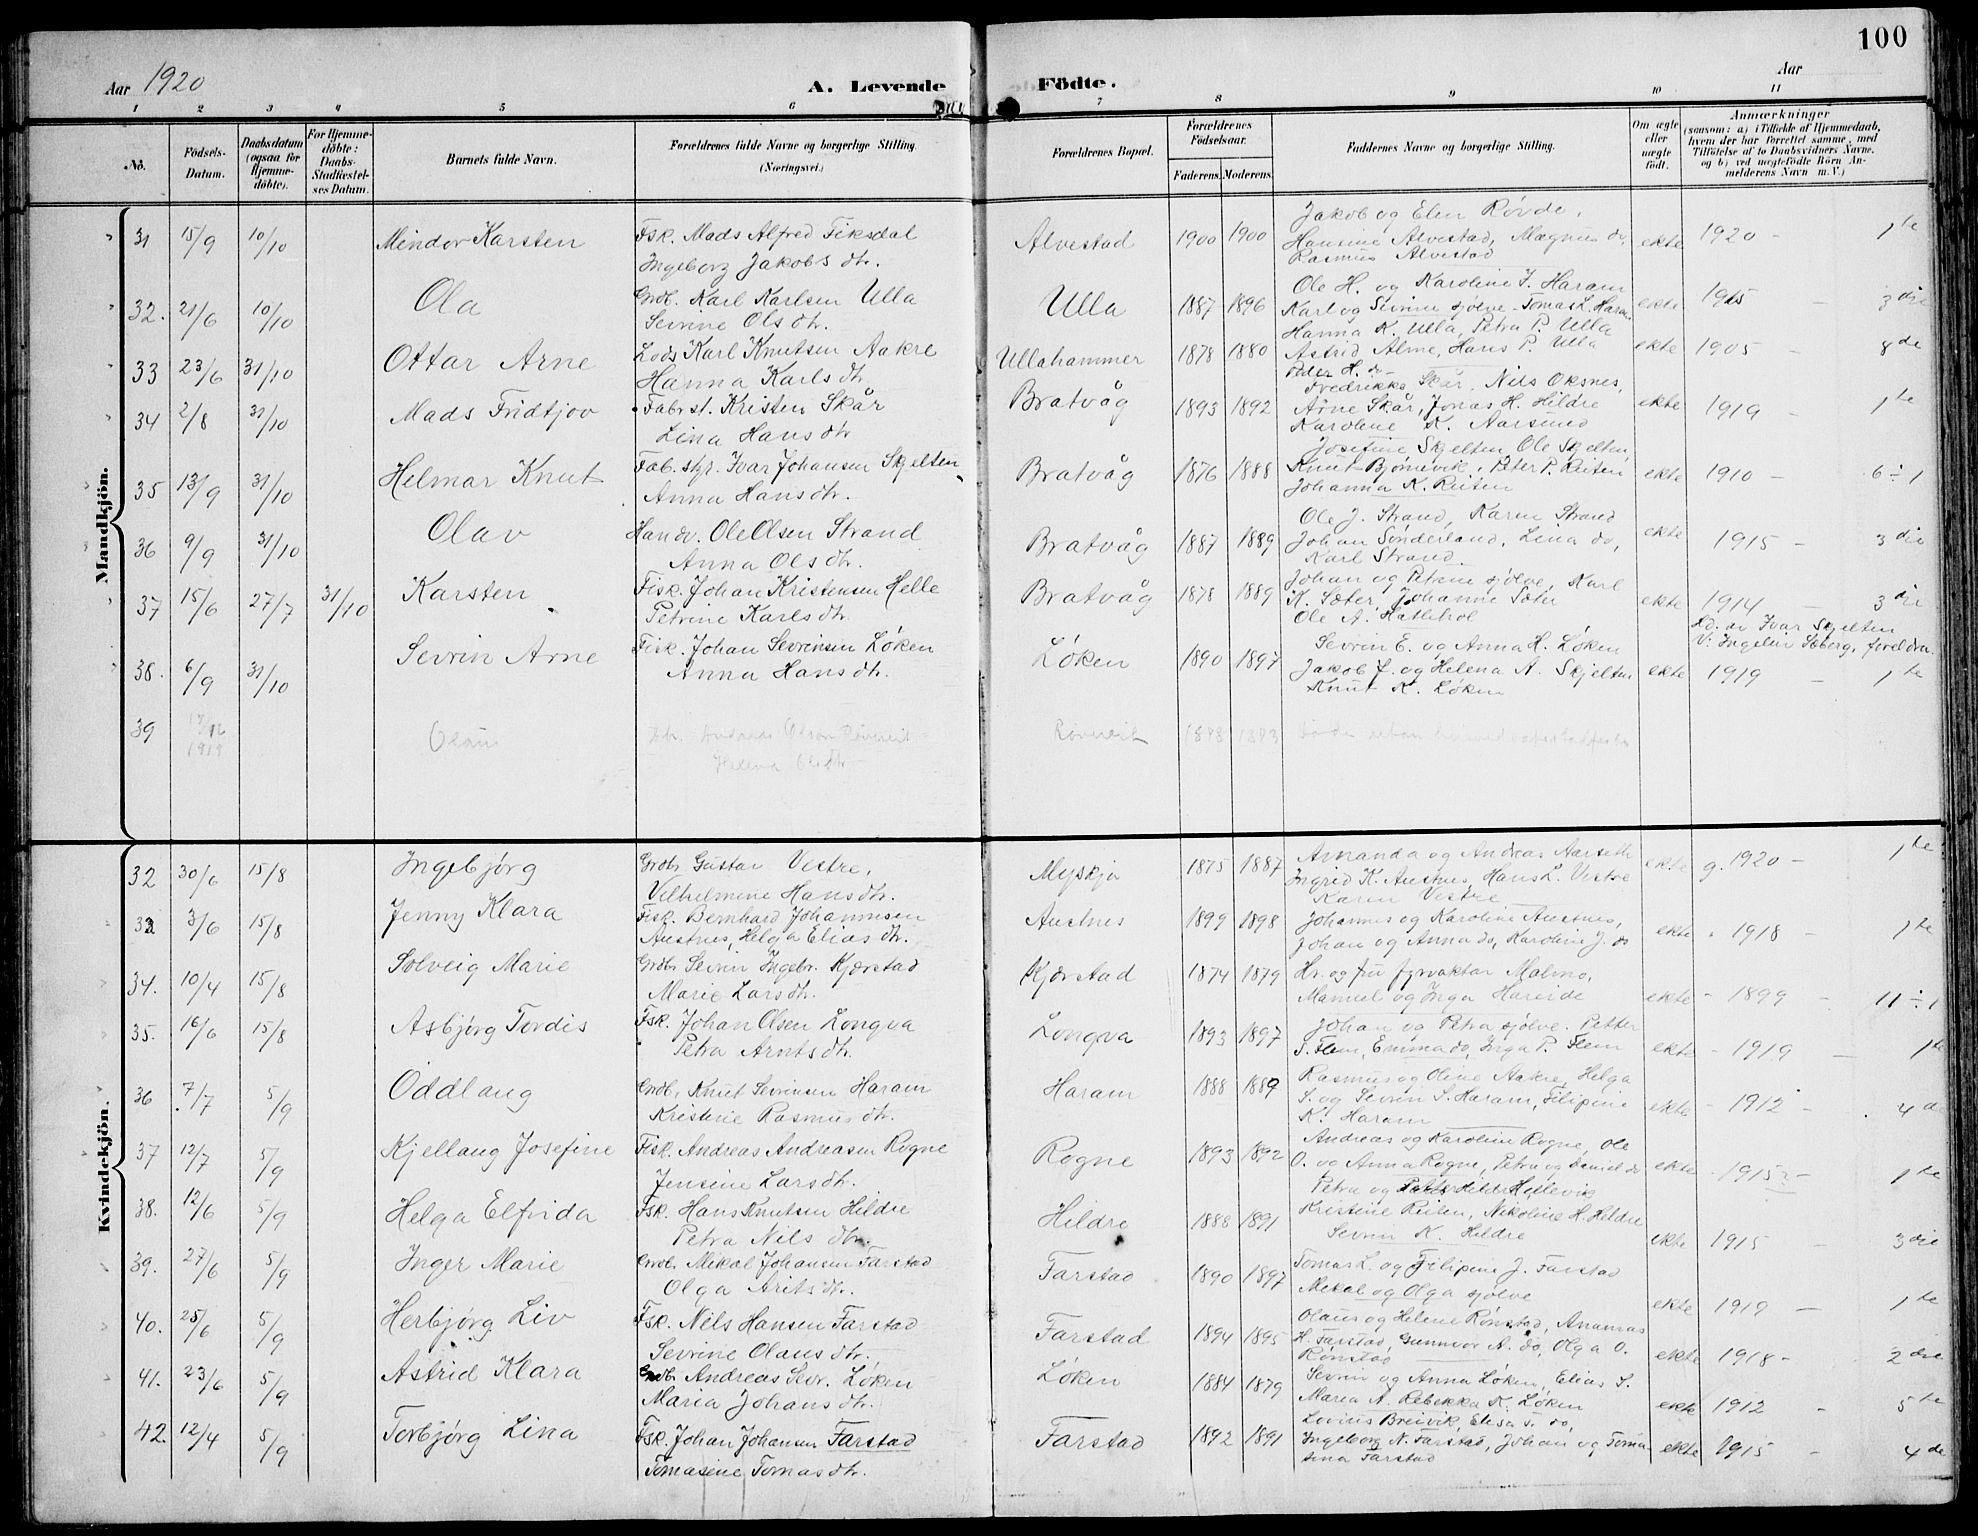 100
Aar 1920
A. Levende Födte.
Aar
1 2 3 4 5 6 7 8 9 10 11
No.
Födsels-Datum.
Daabsdatum (ogsaa for Hjemme-döbte).
For Hjemme-döbte: Daabs-Stadfæstel-ses Datum.
Barnets fulde Navn.
Forældrenes fulde Navne og borgerlige Stilling. (Næringsvei.)
Forældrenes Bopæl.
Forældrenes Födselsaar.
Faderens. Moderens.
Faddernes Navne og borgerlige Stilling.
Om ægte eller uægte födt.
Anmærkninger
(saasom: a) i Tilfælde af Hjemmedaab, hvem der har forrettet samme, med Tilföielse af to Daabsvidners Navne, og b) ved uægtefödte Börn An-melderens Navn m. V.)
Mandkjön.
31 15/9 10/10 Mindor Karsten Fsk. Mads Alfred Fiksdal Alvestad 1900 1900 Jakob og Elen Røvde,
Ingeborg Jakobs dtr. Hansine Alvestad, Magnus do, ekte 1920 - 1te
Rasmus Alvestad
32. 21/6 10/10 Ola Grdb. Karl Karlsen Ulla Ulla 1887 1896 Ole H. og Karoline J. Haram
Sevrine Ols dtr. Karl og Sevrine sjølve - Tomas L. Haram ekte 1915 - 3die
Hanna K. Ulla, Petra P. Ulla
33 23/6 31/10 Ottar Arne Lods Karl Knutsen Aakre Ullahammer 1878 1880 Astrid Alme, Hans P. Ulla ekte 1905 - 8de
Hanna Karls dtr. Peder H. do -
34 2/8 31/10 Mads Fridtjov Fabrst. Kristen Skår Bratvåg 1893 1892 Fredrikke Skår, Nils Oksnes,
Lina Hans dtr Arne Skår, Jonas H. Hildre ekte 1919 - 1te
Karolene K. Aarsund
35 13/9 31/10 Helmar Knut Fab. styr. Ivar Johansen Skjelten Bratvåg 1876 1888 Josefine Skjelten, Ole Skjelten,
Anna Hans dtr. Knut Bjørnevik, Peter P. Reiten ekte 1910 - 6 ÷ 1
Johanna K. Reiten
36 9/9 31/10 Olav Handv. Ole Olsen Strand Bratvåg 1887 1889 Ole J. Strand, Karen Strand
Anna Ols dtr. Johan Sønderland, Lina do, ekte 1915 - 3die
Karl Strand.
37 15/6 27/7 31/10 Karsten Fisk. Johan Kristensen Helle Bratvåg 1878 1889 Johan og Petrine sjølve, Karl
Petrine Karls dtr. K. Sæter, Johanne Sæter ekte 1914 - 3die
Ole A. Hatlehol Hd. av Ivar Skjelten
V: Ingelin Søberg, foreldra.
38. 6/9 31/10 Sevrin Arne Fisk. Johan Sevrinsen Løken Løken 1890 1897 Sevrin E. og Anna H. Løken
Anna Hans dtr. Jakob J. og Helena A. Skjelten ekte 1919 - 1te
Knut K. Løken
39 1919 Olaus Andreas Olson Røneveit
Helena Ols dtr
Kvindekjön.
32 30/6 15/8 Ingebjørg Grdbr Gustav Vestre, Myskja 1875 1887 Amanda og Andreas Aarseth
Vilhelmine Hans dtr. Ingrid K. Austnes, Hans L. Vestre ekte g. 1920 - 1te
Karen Vestre
33 3/6 15/8 Jenny Klara Fisk. Bernhard Johannesen Austnes 1899 1898 Johannes og Karoline Austnes,
Austnes, Helga Elias dtr. Johan og Anna do, Karoline J. do ekte " 1918 - 1te
34. 10/4 15/8 Solveig Marie Grdbr Sevrin Ingebr. Kjærstad Kjærstad 1874 1879 Hr. og fru fyrvaktar Malmo,
Marie Lars dtr. Manuel og Inga Hareide ekte - 1899 - 11 ÷ 1
35. 16/6 15/8 Asbjørg Tordis Fsk. Johan Olsen Longva Longva 1893 1897 Johan og Petra sjølve. Petter
Petra Arnts dtr. S. Flem, Emma do, Inga P. Flem ekte - 1919 - 1te
36 7/7 5/9 Oddlaug Grdb. Knut Sevrinsen Haram Haram 1888 1889 Rasmus og Oline Aakre, Helga
Kristine Rasmus dtr. S. og Sevrin S. Haram, Filipine ekte - 1912 - 4de
K. Haram
37 12/7 5/9 Kjellaug Josefine Fisk. Andreas Andreasen Rogne Rogne 1893 1892 Andreas og Karoline Rogne, Ole
Jensine Lars dtr. O. og Anna Rogne, Petra og Daniel do ekte - 1915? - 1te
Petra og Hellevig
38. 12/6 5/9 Helga Elfrida Fsk. Hans Knutsen Hildre Hildre 1888 1891 Kristine Reiten, Nikoline H. Hildre
Petra Nils dtr. Sevrin K. Hildre ekte 1915 - 3die
39. 27/6 5/9 Inger Marie Grdb. Mikal Johansen Farstad Farstad 1890 1897 Tomas L. og Filipine J. Farstad
Olga Arits dtr. Mikal og Olga sjølve ekte 1919 - 1te
40. 25/6 5/9 Herbjørg Liv Fsk. Nils Hansen Farstad Farstad 1894 1895 Olaus og Helene Rønstad, Ananias
Sevrine Olaus dtr. H. Farstad, Gunnvor A. do, Olga O. ekte 1918 - 2dre
Rønstad
41. 23/6 5/9 Astrid Klara Grdb. Andreas Sevr. Løken Løken 1884 1879 Sevrin og Anna Løken, Elias S.
Maria Johans dtr. Marea A. Rebekka K. Løken ekte 1912 - 5te
42. 12/4 5/9 Torbjørg Lina Fsk. Johan Johansen Farstad Farstad 1892 1891 Lovius Breivik, Elisa do,
Tomasine Tomas dtr. Ingeborg N. Farstad, Johan og Toma ekte 1915 - 4de
sina Farstad